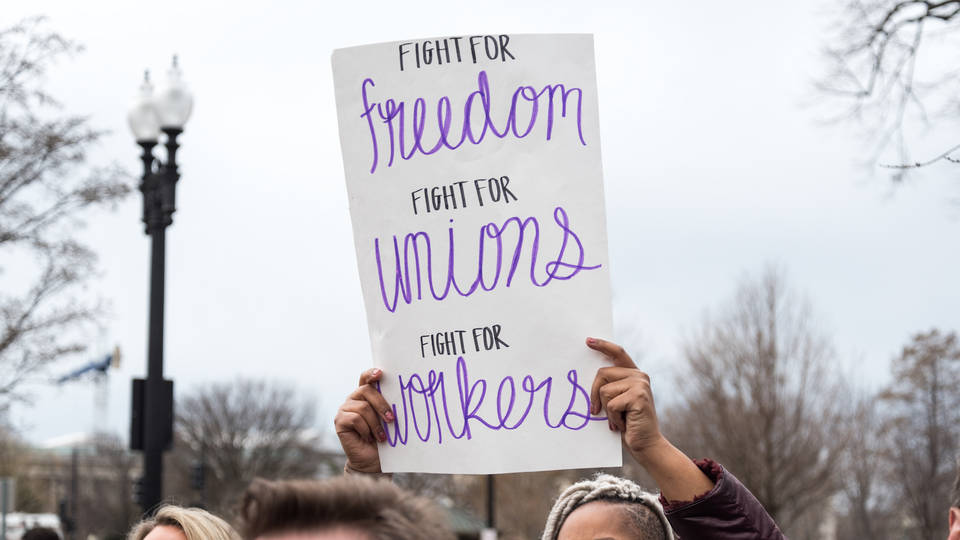 FIGHT FOR
freedom
FIGHT FOR
unions
FIGHT FOR
workers